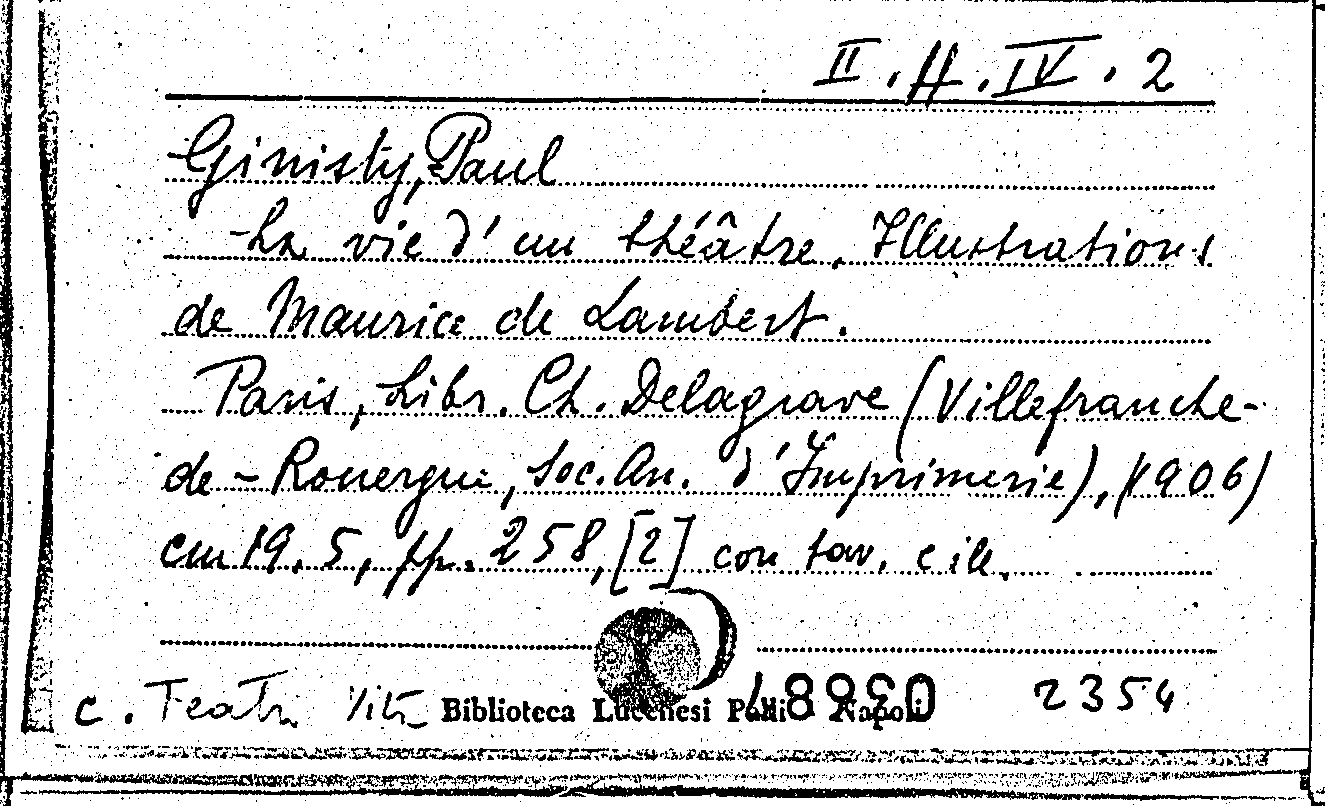 II. A. IV. 2
Ginisty, Paul
La vie d'un théâtre. Illustrations
de Maurice de Lambert.
Paris, Libr. Ch. Delagrave (Villefranche-
de-Rouergue, Soc. An. d'Imprimerie), (1906)
cm 19.5, pp. 258, [2] con tav. e ill.
c. Teatri Biblioteca Lucchesi Palli Napoli 2354